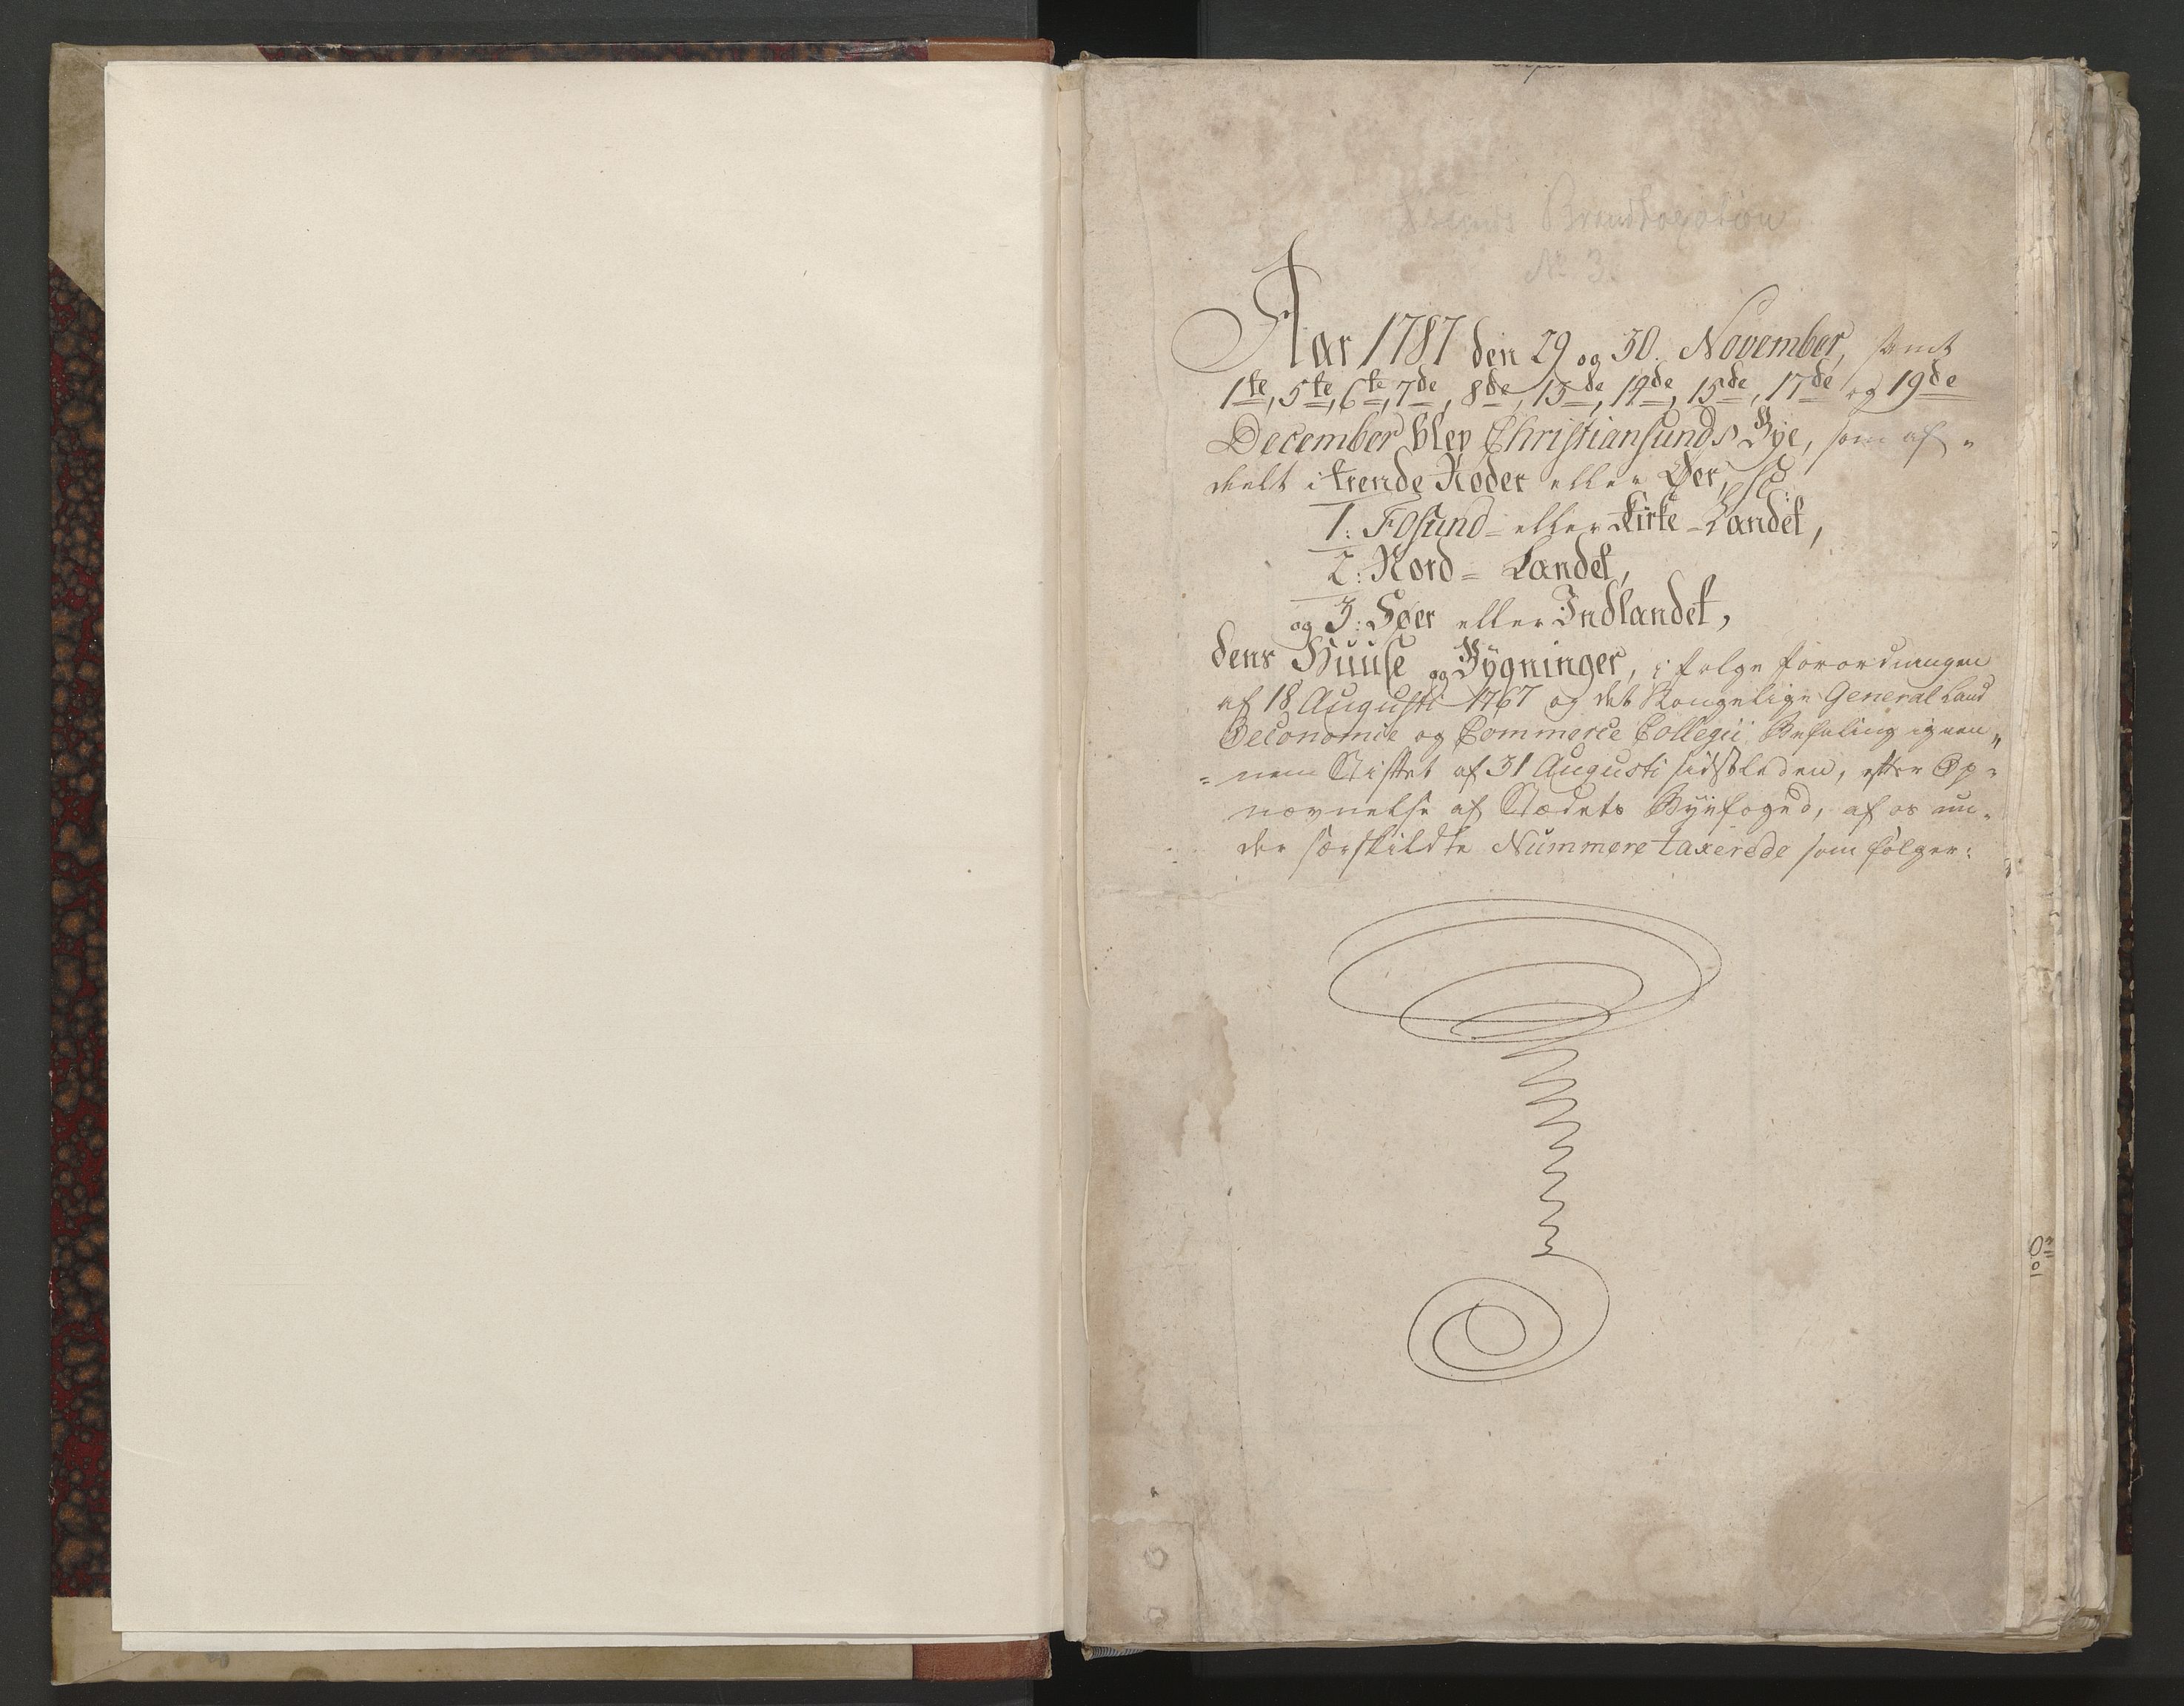 Brandtaxation
No 3.
Aar 1787 den 29 og 30. November, samt
1te, 5te, 6te, 7de, 8de, 13de, 14de, 15de, 17de og 19de
December blev Christiansunds Bye, som af-
deelt i trende Roder eller Øer, sc:
1: Fosund- eller Kirke-Landet,
2: Nord- Landet,
og 3: Søer eller Indlandet,
dens Huuse og Bygninger, i følge Forordningen
af 18 Augusti 1767 og det Kongelige General Land
Oeconomie og Commerce Collegii Befaling igien-
= nem Stiftet af 31 Augusti sidstleden, efter Op-
nævnelse af Stædets Byefoged, af os un-
der særskildte Nummere taxerede som følger: